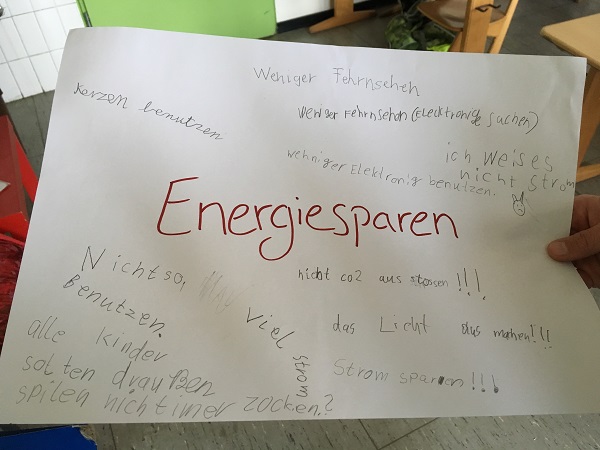 Weniger Fehrnsehen
Kerzen benutzen
weniger Fehrnsehen (Elecktronige sachen)
ich weises
nicht strom
wehniger Elektronig benutzen.
Energiesparen
Nicht so, viel strom
Benutzen.
nicht co2 aus stossen!!!
das Licht aus machen!!!
Strom sparen!!!
alle kinder
solten draußen
spilen nicht imer zocken.?